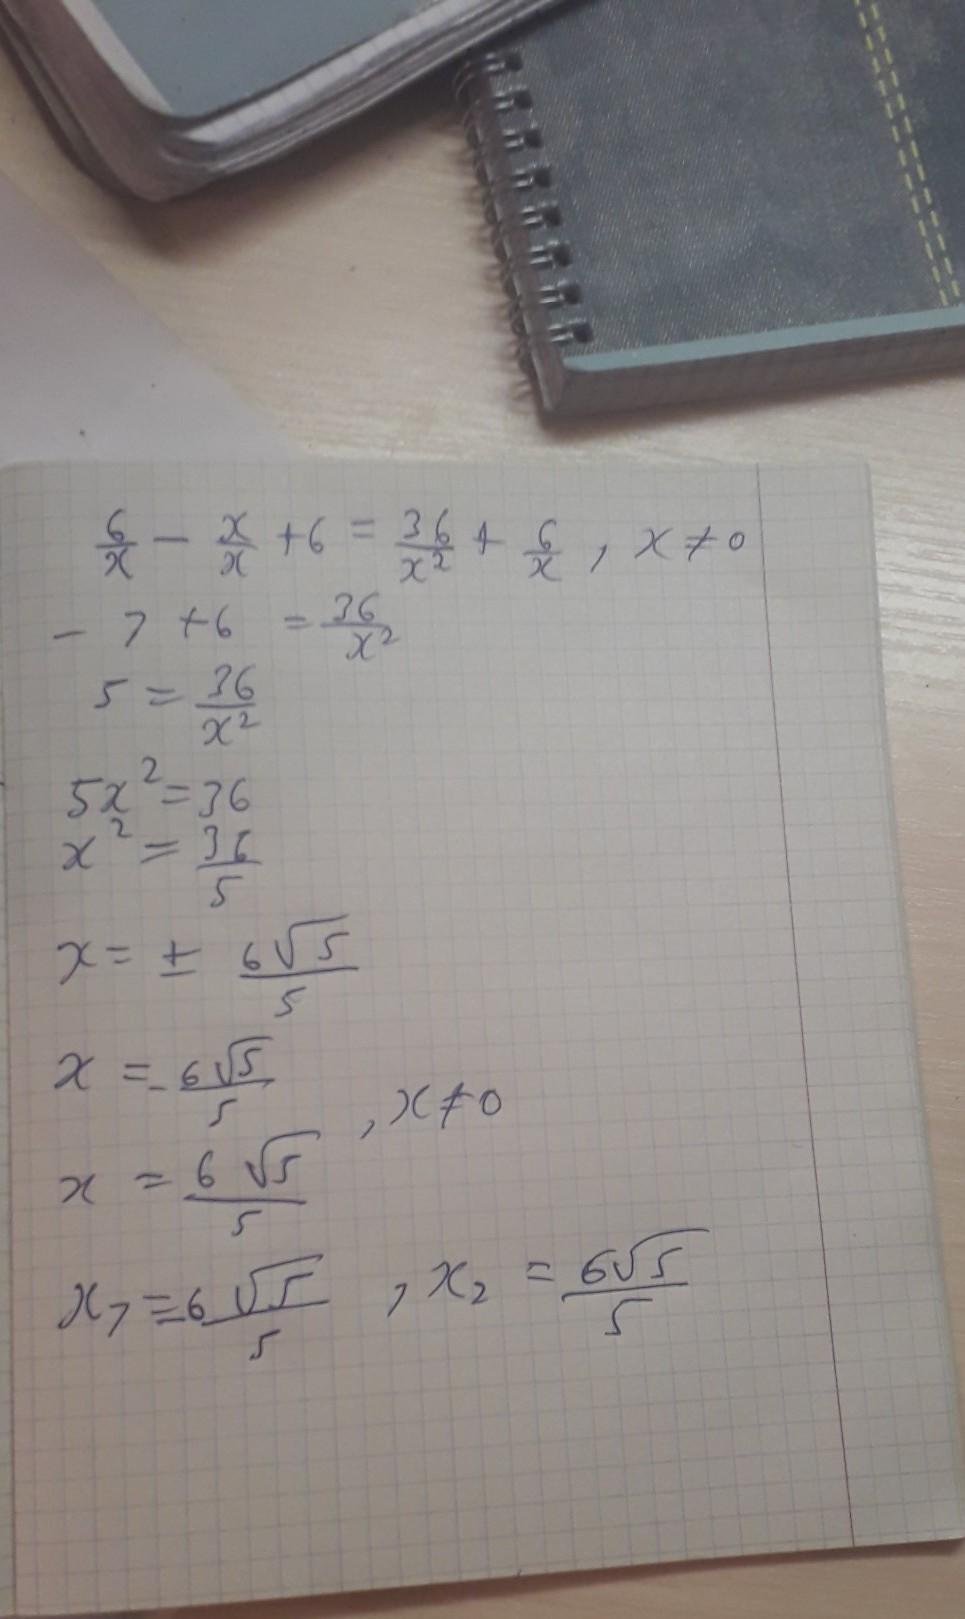 6/x - x/x + 6 = 36/x² + 6/x , x ≠ 0
- 1 + 6 = 36/x²
5 = 36/x²
5x² = 36
x² = 36/5
x = ± 6√5/5
x = - 6√5/5
, x ≠ 0
x = 6√5/5
x₁ = - 6√5/5 , x₂ = 6√5/5